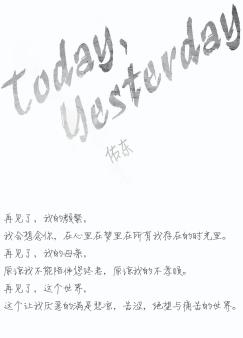 Today,
Yesterday
佑东
再见了，我的颓繁，
我会想念你，在心里在梦里在所有我存在的时光里。
再见了，我的母亲，
原谅我不能陪伴您终老，原谅我的不孝顺。
再见了，这个世界，
这个让我厌恶的满是悲哀，苦涩，绝望与痛苦的世界。